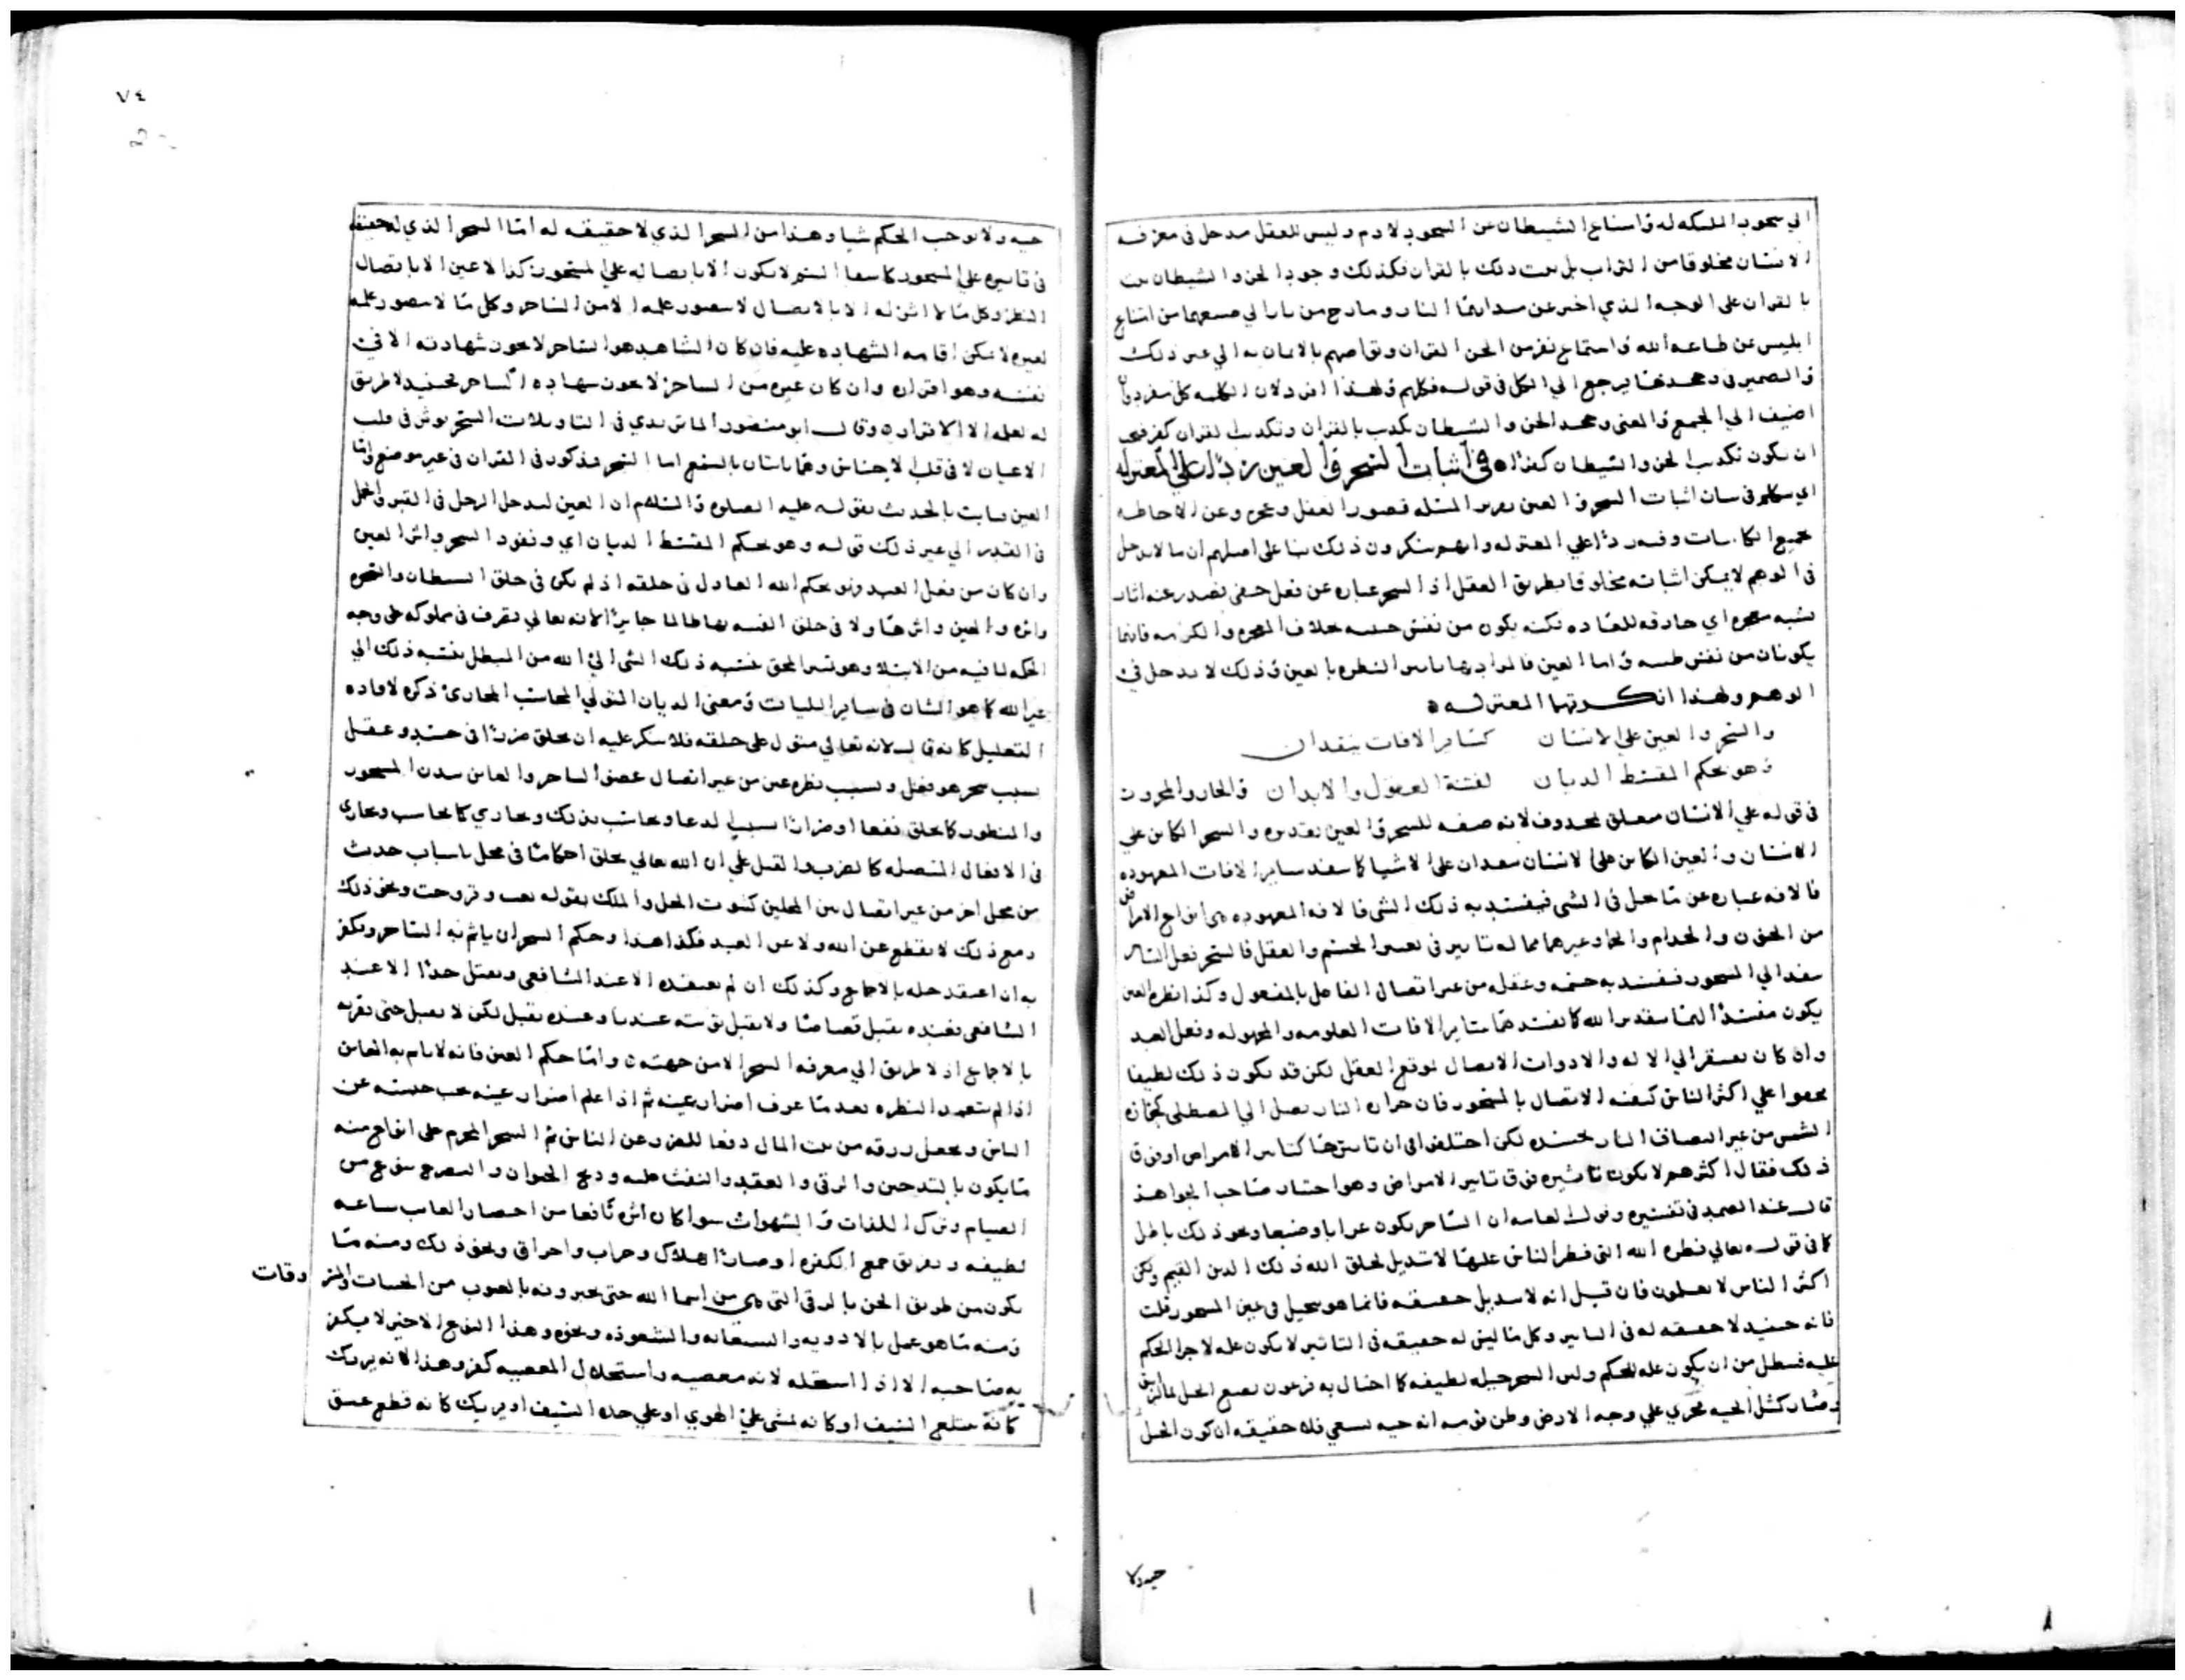 الي سجود الملىكه له وامتناع الشيطان عن السجود لادم وليس للعقل مدخل في معرفه
الانسان مخلوقا من التراب بل ثبت ذلك بالقران فكذلك وجود الجن والشيطان ثبت
بالقران على الوجه الذي اخبر عن النار ومارج من نار الي من امتناع
ابليس عن طاعه الله واستماع نفر من الجن القران وتواصيهم بالايمان به الي غير ذلك
والضمير في وجحدها يرجع الي الكل في قوله فكلهم ولهذا افرد لان الكلمه كل مفرد
اضيف الي الجمع والمعنى وجحد الجن والشيطان تكذيب بالقران وتكذيب القران كفر فيجب
ان يكون تكذيب الجن والشيطان كفرا ه في اثبات السحر والعين ردا على المعتزله
اي سكلم في بيان اثبات السحر والعين المسله قصور العقل وعجزه وعن الاحاطه
بجميع الكاينات وفيه رد على المعتزله وانهم ينكرون ذلك بنا على اصلهم ان ما لا يدخل
في الوهم لا يمكن اثباته مخلوقا بطريق العقل اذ السحر عباره عن فعل خفي يصدر عنه اثار
تشبه معجزه اي خارقه للعاده لكنه يكون من نفس خبيثه بخلاف المعجزه والكرامه فانهما
يكونان من نفس طيبه واما العين فالمراد بها تاثير النظره بالعين وذلك لا يدخل في
الوهم ولهذا انكرتها المعتزله ه
والسحر والعين على الانسان كساير الافات ينفذان
وهو بحكم المقسط الديان لفتنة العقول والابدان والجار والمجرور
في قوله على الانسان معلق بمحذوف لانه صفه للسحر والعين تقديره والسحر الكاين على
الانسان والعين الكاين على الانسان ينفذان على الاشيا كما ينفذ ساير الافات المعهوده
فالافه عباره عن ما حل في الشي فيفسد به ذلك الشي فالافه المعهوده هي انواع الامراض
من الجنون والجذام والحما وغيرهما مما له تاثير في تغيير الجسم والعقل فالسحر فعل الساحر
ينفذ الي المسحور فيفسد به جسمه وعقله من غير اتصال الفاعل بالمفعول وكذا نظره العين
يكون مفسدا بتقدير الله كما يفسدهما ساير الافات المعلومه والمجهوله وفعل العبد
وان كان يفتقر الي الاله والادوات الاتصال لوقع الفعل لكن قد يكون ذلك لطيفا
يخفى على اكثر الناس كيفيه الاتصال بالمسحور فان حراره النار تصل الي المصطلي كحراره
الشمس من غير اتصاف النار بجسده لكن اختلفوا في ان تاثيرها كتاثير الامراض او فوق
ذلك فقال اكثرهم لا يكون تاثيره فوق تاثير الامراض وهو اختيار صاحب الجواهر
قال عبد الصمد في تفسيره وقول العامه ان الساحر يكون غرابا وضبعا ونحو ذلك باطل
كما في قوله تعالي فطره الله التي فطر الناس عليها لا تبديل لخلق الله ذلك الدين القيم ولكن
اكثر الناس لا يعلمون فان قيل انه لا تبديل حقيقه فانما هو تخييل في عين المسحور قلت
فانه حينيذ لا حقيقه له في التاثير وكل ما ليس له حقيقه في التاثير لا يكون عله لاجرا الحكم
عليه فبطل من ان يكون عله للحكم وليس السحر حيله لطيفه كما احتال به فرعون بصنع الحبل بالزيبق
وصار كشل الحيه تجري على وجه الارض وظن قومه انه حيه تسعي فلا حقيقه ان كون الحبل
حيه ولا
٧٤
حيه ولا يوجب الحكم شيا وهذا من السحر الذي لا حقيقه له اما السحر الذي له حقيقه
في تاثيره على المسحور كاسقا السم لا يكون الا باتصاله على المسحور كذا لا عين الا باتصال
النظر وكل ما لا اثر له الا بالاتصال لا يتصور علمه الا من الساحر وكل ما لا يتصور علمه
لغيره لا يمكن اقامه الشهاده عليه فان كان الشاهد هو الساحر لا يجوز شهادته الا في
نفسه وهو اقراره وان كان غيره من الساحر لا يجوز شهاده الساحر فحينيذ لا طريق
له لعلمه الا الاقرار ه وقال ابو منصور الماتريدي في التاويلات السحر يوثر في قلب
الاعيان لا في قلب الاجناس وهما ثابتان بالسمع اما السحر فمذكور في القران في غير موضع واما
العين ثابت بالحديث بقوله عليه الصلوه والسلام ان العين ليدخل الرجل في القبر والجمل
في القدر الي غير ذلك قوله وهو بحكم المقسط الديان اي ونفوذ السحر واثر العين
وان كان من فعل العبد فهو بحكم الله العادل في خلقه اذ لم يكن في خلق الشيطان والسحره
واثره والعين واثرها ولا في خلق الفتنه بها ظالما جايرا لانه تعالي تصرف في مملوكه على وجه
الحكمه لما فيه من الابتلا وهو تميز المحق بنسبه ذلك الشي الي الله من المبطل بنسبه ذلك الي
غير الله كما هو الشان في ساير البليات ومعنى الديان المتولي المحاسب المجازي ذكره لافاده
التعليل كانه قال لانه تعالي متول على خلقه فلا ينكر عليه ان يخلق ضررا في جسد وعقل
بسبب سحر هو بفعل وبسبب نظره عين من غير اتصال عضو الساحر والعاين ببدن المسحور
والمنظور كما يخلق نفعا او ضرارا بسبب الدعا ويحاسب بذلك ويجازي كما يحاسب ويجازي
في الافعال المتصله كالضرب والقتل على ان الله تعالي يخلق احكاما في محل باسباب حدث
من محل اخر من غير اتصال بين المحلين كثبوت الحل والملك بقوله بعت وتزوجت ونحو ذلك
ومع ذلك لا ينقطع عن الله ولا عن العبد فكذا هذا وحكم السحر ان ياثم به الساحر ويكفر
به ان اعتقد حله بالاجماع وكذلك ان لم يعتقده الا عند الشافعي ويقتل حدا الا عند
الشافعي فعنده يقتل قصاصا ولا يقبل توبته عندنا وعنده يقبل لكن لا يقتل حتى يقر به
بالاجماع اذ لا طريق الي معرفه السحر الا من جهته ه واما حكم العين فانه لا ياثم به العاين
اذا لم يتعمد النظره بعد ما عرف اضرار عينه ثم اذا علم اضرار عينه يجب حبسه عن
الناس ويجعل رزقه من بيت المال دفعا للضرر عن الناس ثم السحر المحرم على انواع منه
ما يكون بالتدخين والرقى والعقد والنفث عليه وذبح الحيوان والتضرع بنوع من
الصيام وترك اللذات والشهوات سوا كان اثره نافعا من احضار الغايب ساعه
لطيفه وتفريق جمع الكفره او ضارا اهلاك وخراب واحراق ونحو ذلك ومنه ما
يكون من طريق الجن بالرقى التي هي من اسما الله حتى يخبرونه بالغيوب من الخبيات والمسروقات
ومنه ما هو عمل بالادويه والشعوذه ونحوه وهذا النوع الاخير لا يكفر
به صاحبه الا اذا استحله لانه معصيه واستحلال المعصيه كفر وهذا لانه يريك
كانه يبتلع السيف او كانه يمشي على الهوي او على حده السيف او يريك كانه قطع عنق